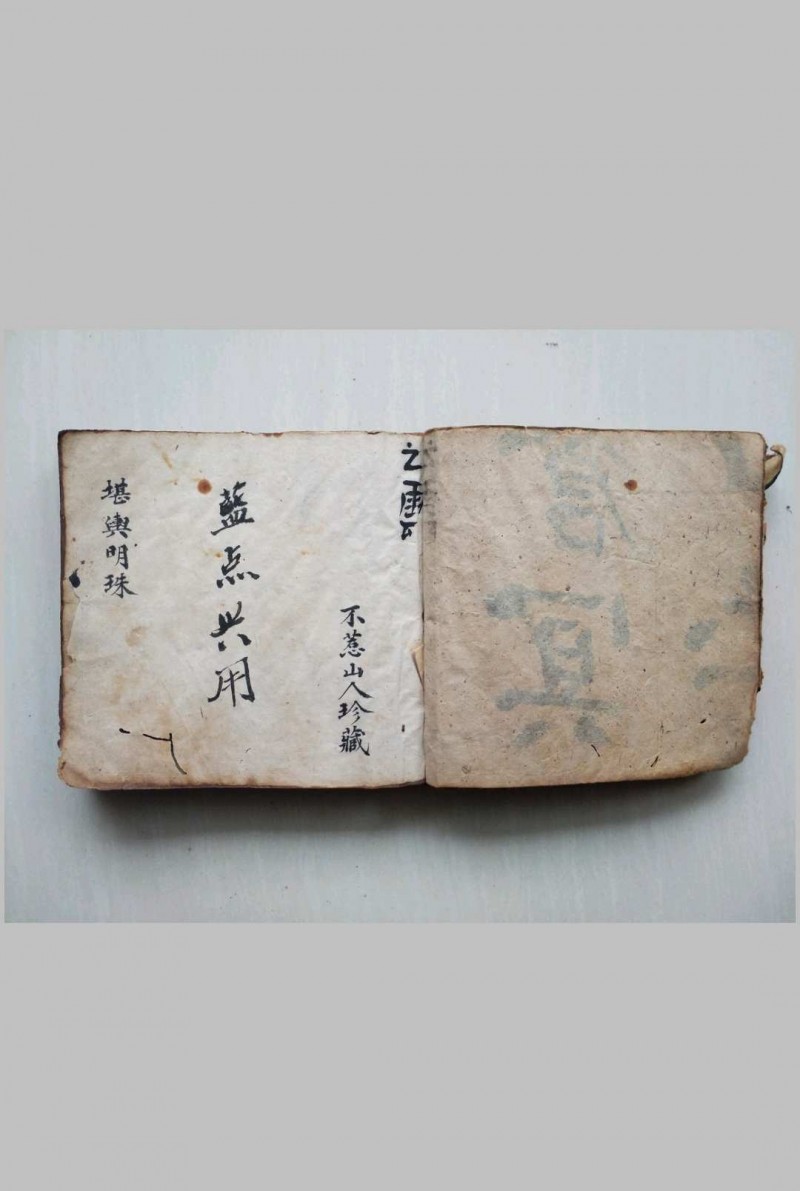 之雲
不惹山人珍藏
藍点共用
堪輿明珠